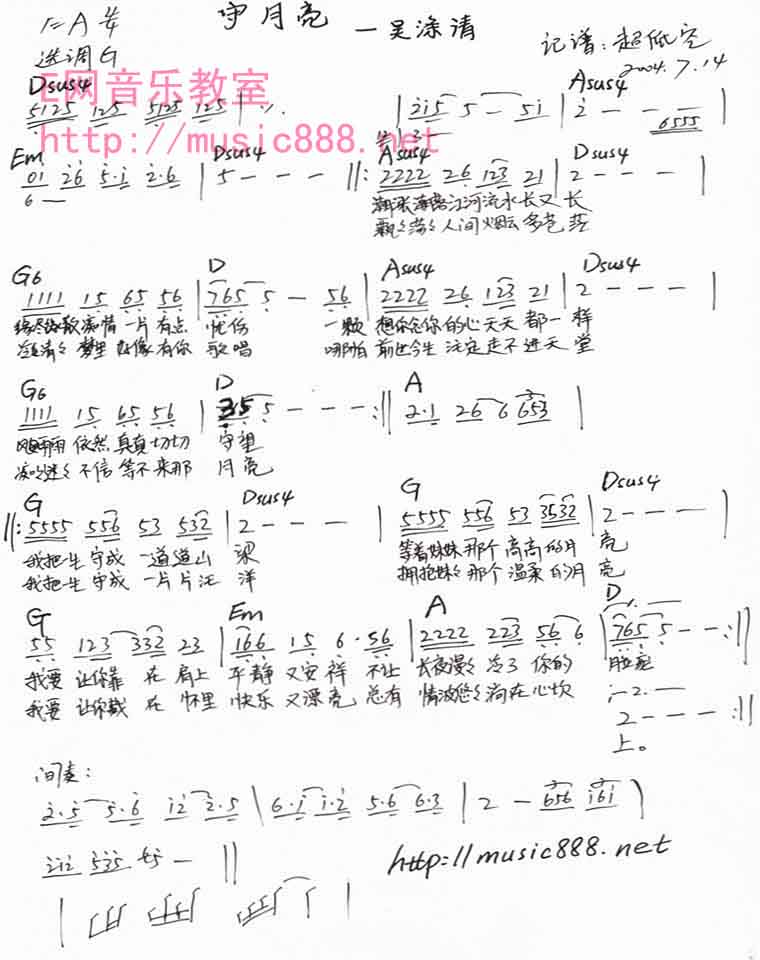 守月亮 —吴涤清
1=A 4/4
选调G
记谱:超低空
2004.7.14
E网音乐教室
http://music888.net
Dsus4 Asus4
5125 125 5125 125 | ٪ | 2i5 5 — 5i | 2 - - 6555 |
Em Dsus4 Asus4 Dsus4
01 26 5·i 2·6 | 5 - - - ||: 2222 26 123 21 | 2 - - - |
潮涨潮落江河流水长又长
飘飘荡荡人间烟云多苍茫
G6 D Asus4 Dsus4
1111 15 65 56 | 765 5 — 56 | 2222 26 123 21 | 2 - - - |
痴情一片有点忧伤 一颗想你念你的心天天都一样
冷冷清清梦里好像有你歌唱 哪怕前世今生注定走不进天堂
G6 D A
1111 15 65 56 | 35 5 - - - :|| 2·1 26 6 653 |
风风雨雨依然真真切切守望
不信等不来那月亮
G Dsus4 G Dsus4
||: 5555 556 53 532 | 2 - - - | 5555 556 53 3532 | 2 - - - |
我把一生守成一道道山梁 等着妹妹那个高高的月亮
我把一生守成一片片汪洋 拥抱妹妹那个温柔的月亮
G Em A D
55 123 332 23 | 166 15 6·56 | 2222 223 56 6 | 765 5 - - :||
我要让你靠在肩上平静又安祥 不让长夜漫漫冷了你的脸庞
我要让你戴在怀里快乐又漂亮 总有情波悠悠淌在心坎
i-2.—
2 - - - :||
上。
间奏:
2·5 5·6 i2 2·5 | 6·i i·2 5·6 6·3 | 2 — 656 i6i |
2i2 535 5 — ||
http://music888.net